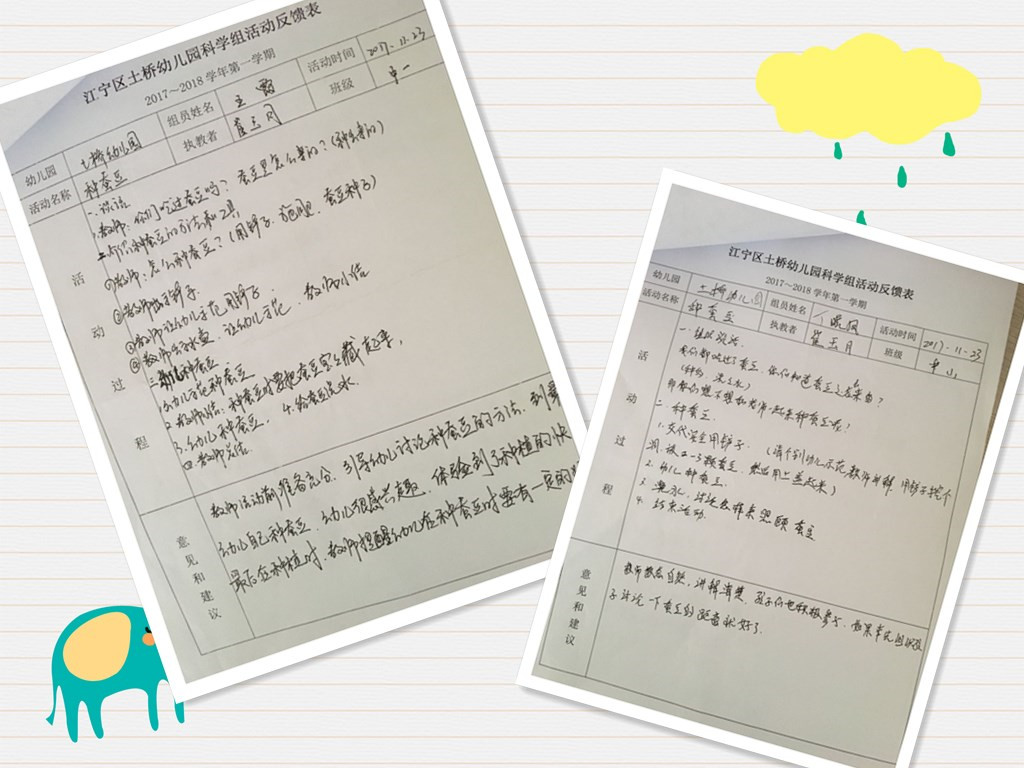 江宁区土桥幼儿园科学组活动反馈表
2017～2018 学年第一学期
幼儿园 土桥幼儿园 组员姓名 王 活动时间 2017.11.23
活动名称 种蚕豆 执教者 崔玉月 班级 中一
活动过程
一、谈话
1.教师：你们吃过蚕豆吗？蚕豆是怎么来的？（种出来的）
二、介绍种蚕豆的方法和工具
①教师：怎么种蚕豆？（用铲子、施肥、蚕豆种子）
②教师出示铲子
③教师请幼儿示范用铲子
④教师出示水壶，请幼儿示范 教师小结
三、种蚕豆
1.幼儿示范种蚕豆
2.教师小结：种蚕豆时要把蚕豆宝宝藏起来，
3.幼儿种蚕豆， 4.给蚕豆浇水。
四、教师总结
意见和建议
教师活动前准备充分，引导幼儿讨论种蚕豆的方法，到
幼儿自己种蚕豆，幼儿很感兴趣，体验到了种植的快
最后在种植时，教师提醒幼儿在种蚕豆时要有一定的
江宁区土桥幼儿园科学组活动反馈表
2017～2018 学年第一学期
幼儿园 土桥幼儿园 组员姓名 活动时间 2017.11.23
活动名称 种蚕豆 执教者 崔玉月 班级 中
活动过程
一、组织谈话
你们都吃过了蚕豆，你们知道蚕豆怎么来的？
（种的 买的）
那你们想不想和老师一起来种蚕豆呢？
二、种蚕豆
1.交代安全用铲子 （请个别幼儿示范，教师讲解，用铲子挖个
洞，放2-3颗蚕豆，然后用土盖起来）
2.幼儿种蚕豆
3.浇水，讨论怎样来照顾蚕豆
4.结束活动.
意见和建议
教师教态自然，讲解清楚，孩子们也积极参与，如果
子讨论一下蚕豆的距离就好了.